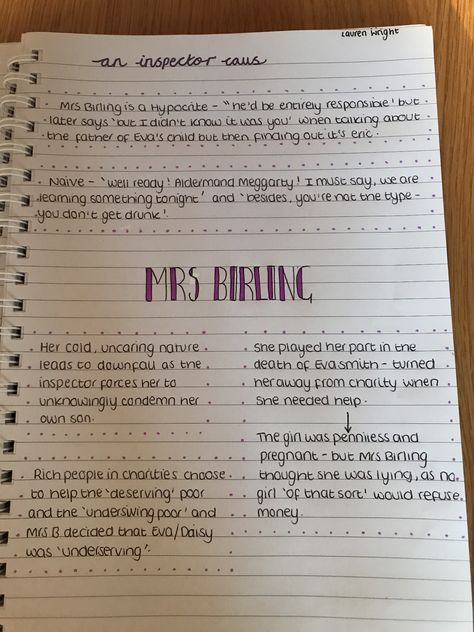 Lauren Wright
an inspector calls
. Mrs Birling is a Hypocrite - "he'd be entirely responsible' but
later says 'but I didn't know it was you' when talking about
the father of Eva's child but then finding out it's eric.
. Naive - 'well really! Alderman Meggarty! I must say, we are
learning something tonight' and 'besides, you're not the type -
you don't get drunk'.
MRS BIRLING
Her cold, uncaring nature
leads to downfall as the
inspector forces her to
unknowingly condemn her
own son.
Rich people in charities choose
to help the 'deserving' poor
and the 'underswing poor' and
Mrs B decided that Eva/Daisy
was 'underserving'.
she played her part in the
death of Eva smith - turned
her away from charity when
she needed help.
The girl was penniless and
pregnant - but Mrs Birling
thought she was lying, as no
girl 'of that sort' would refuse
money.